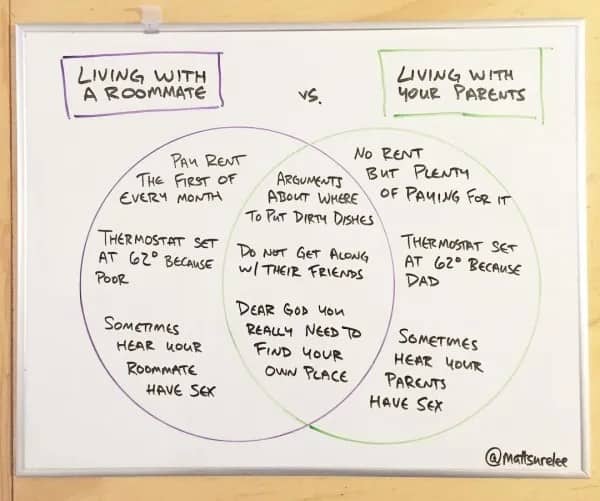 LIVING WITH
A ROOMMATE
VS.
LIVING WITH
YOUR PARENTS
PAY RENT
THE FIRST OF
EVERY MONTH
THERMOSTAT SET
AT 62° BECAUSE
POOR
SOMETIMES
HEAR YOUR
ROOMMATE
HAVE SEX
ARGUMENTS
ABOUT WHERE
TO PUT DIRTY DISHES
DO NOT GET ALONG
W/ THEIR FRIENDS
DEAR GOD YOU
REALLY NEED TO
FIND YOUR
OWN PLACE
NO RENT
BUT PLENTY
OF PAYING FOR IT
THERMOSTAT SET
AT 62° BECAUSE
DAD
SOMETIMES
HEAR YOUR
PARENTS
HAVE SEX
@mattsurelee